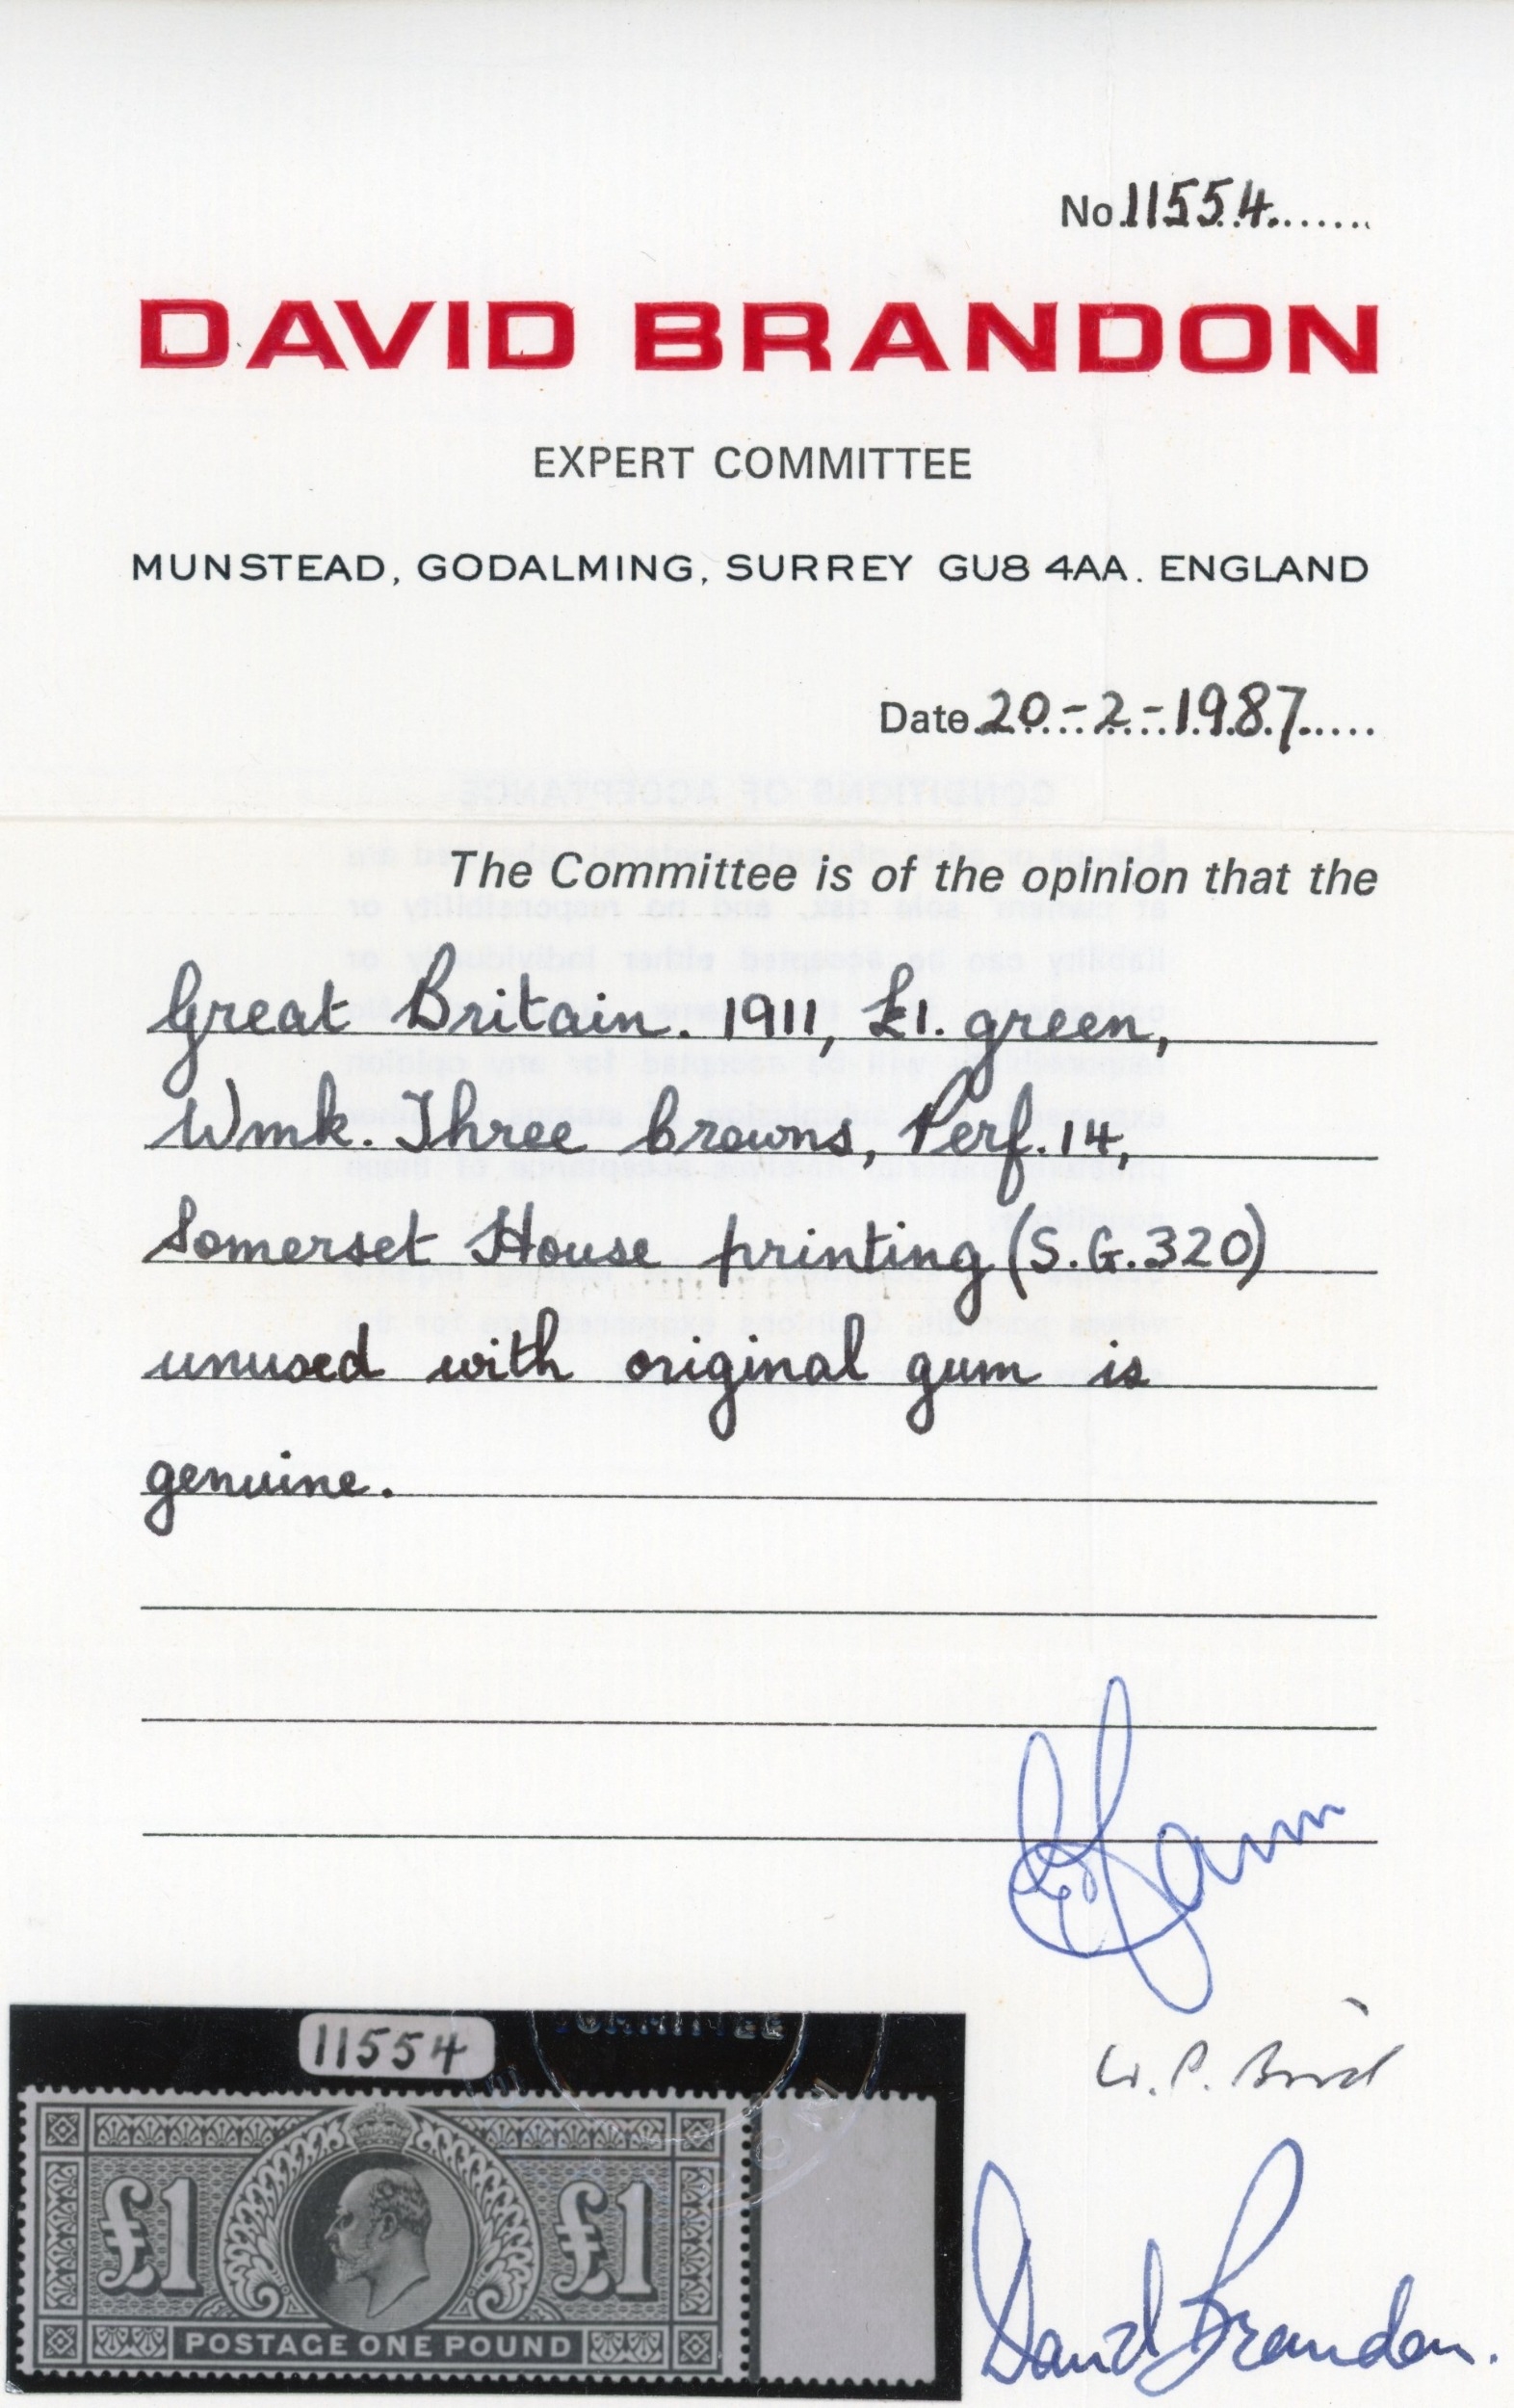 No. 11554
DAVID BRANDON
EXPERT COMMITTEE
MUNSTEAD, GODALMING, SURREY GU8 4AA. ENGLAND
Date 20-2-1987
CONDITIONS OF ACCEPTANCE
The Committee is of the opinion that the
Great Britain. 1911, £1. green,
Wmk. Three Crowns, Perf. 14,
Somerset House printing (S.G.320)
unused with original gum is
genuine.
W. P. Bird
11554
COMMITTEE
£1 £1
POSTAGE ONE POUND
David Brandon.